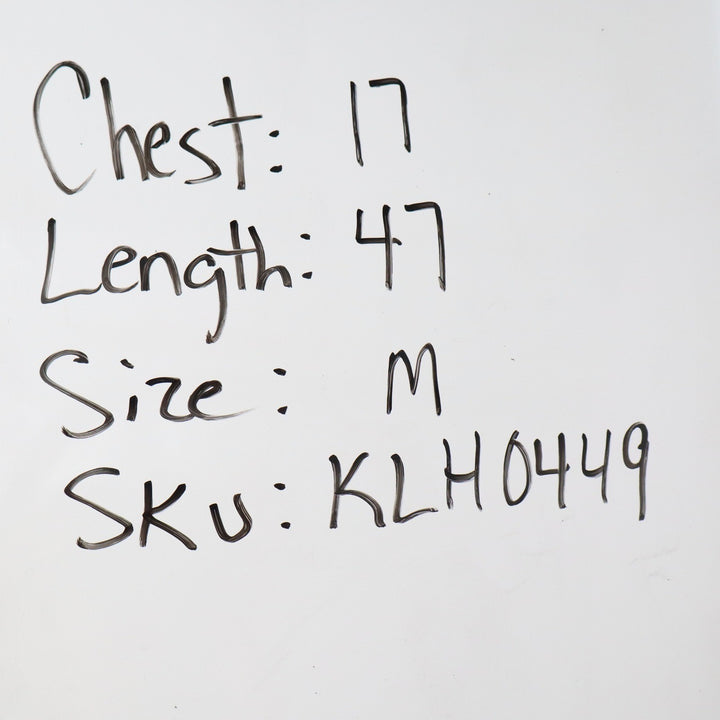 Chest: 17
Length: 47
Size: M
SKU: KLH0449